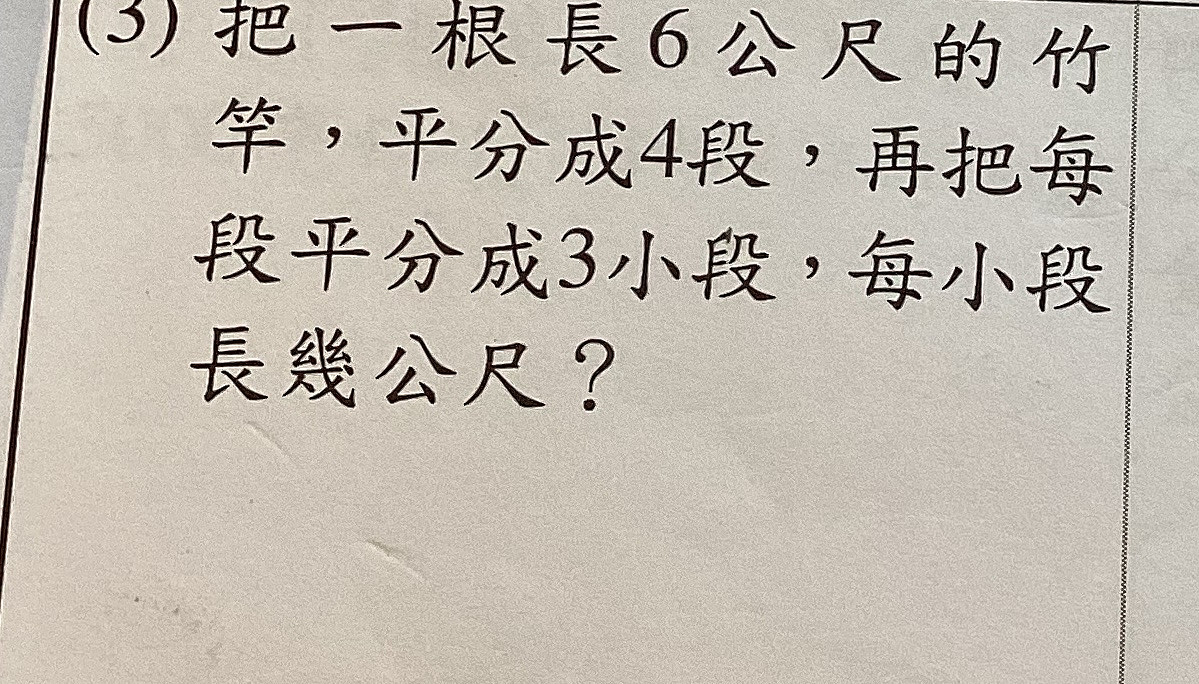 (3) 把一根長6公尺的竹
竿，平分成4段，再把每
段平分成3小段，每小段
長幾公尺？